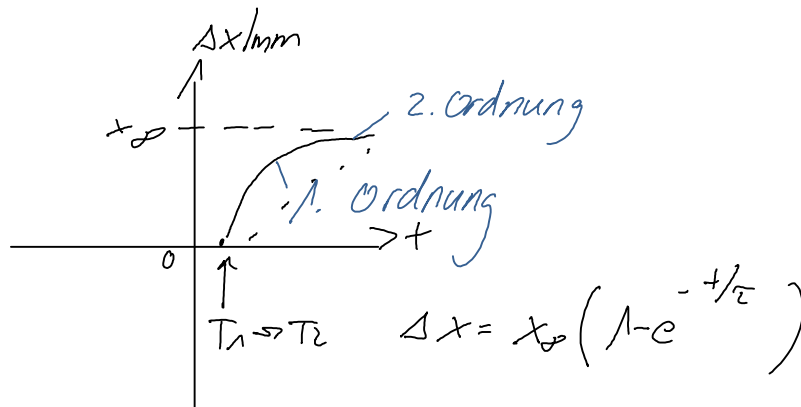 Δx/mm
2. Ordnung
x∞
1. Ordnung
t
0
T1 → T2
Δx = x∞ (1-e^-t/τ)